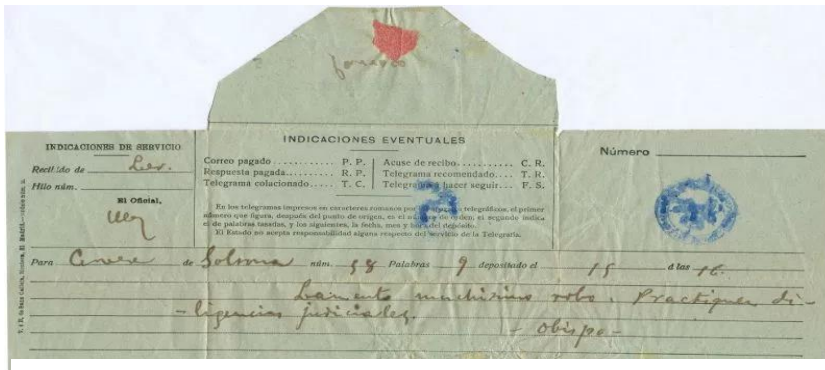 INDICACIONES DE SERVICIO
Recibido de Ler.
Hilo núm.
El Oficial,
INDICACIONES EVENTUALES
Correo pagado ........... P. P.
Respuesta pagada........ R. P.
Telegrama colacionado..... T. C.
Acuse de recibo.......... C. R.
Telegrama recomendado.... T. R.
Telegrama á hacer seguir.... F. S.
En los telegramas impresos en caracteres romanos por telegráficos, el primer
número que figura, después del punto de origen, es el número de orden, el segundo indica
el de palabras tasadas, y los siguientes, la fecha, mes y hora del depósito.
El Estado no acepta responsabilidad alguna respecto del servicio de la Telegrafía.
Número
Para de Solsona núm. 58 Palabras 9 depositado el 15 á las 16.
Lamento muchísimo robo. Practiquen di-
-ligencias judiciales.
- Obispo -